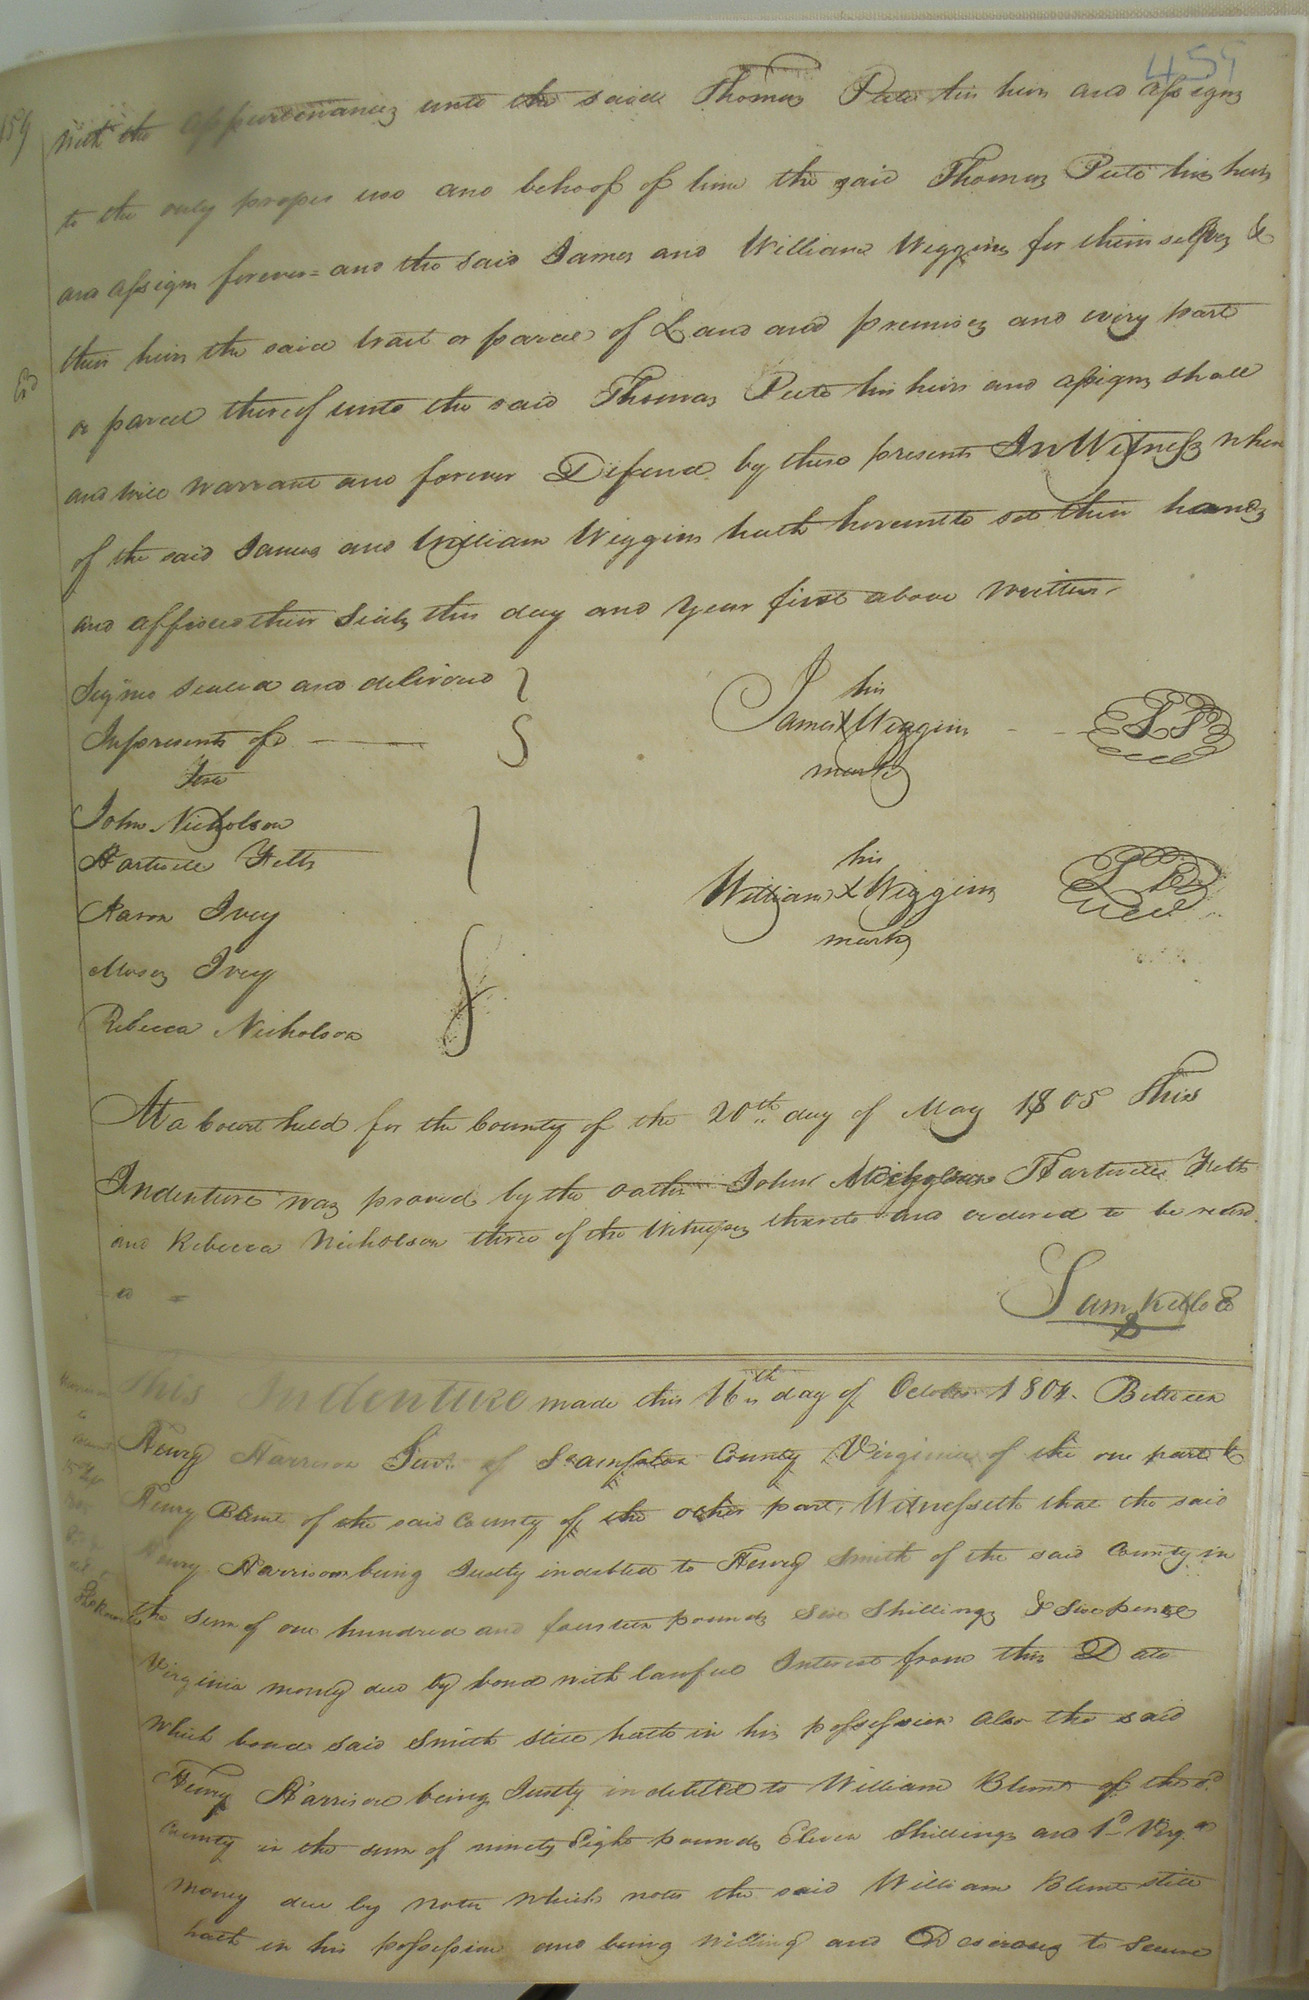 459
159
with the appurtenances unto the said Thomas Pete his heirs and assigns
to the only proper use and behoof of him the said Thomas Pete his heirs
and assigns forever = and the said James and William Wiggins for themselves &
their heirs the said tract or parcel of Land and premises and every part
Exd
or parcel thereof unto the said Thomas Pete his heirs and assigns shall
and will warrant and forever Defend by these presents In Witness where
of the said James and William Wiggins hath hereunto set their hands
and affixed their Seals this day and year first above written.
Signed sealed and delivered
In presents of
Test
John Nicholson
Hartwell Felts
Aaron Ivey
Moses Ivey
Rebecca Nicholson
his
James X Wiggins
mark
his
William X Wiggins
mark
At a Court held for the County of the 20th day of May 1805 This
Indenture was proved by the oaths John Nicholson Hartwell Felts
and Rebecca Nicholson three of the Witnesses thereto and ordered to be record
Sam Kello
This Indenture made this 16th day of October 1804. Between
Henry Harrison Junr. of Southampton County Virginia of the one part &
Henry Blunt of the said County of the other part, Witnesseth that the said
Henry Harrison being Justly indebted to Henry Smith of the said County in
the sum of one hundred and fourteen pounds Six Shillings & Sixpence
Virginia money due by bond with lawful Interest from this Date
which bond said Smith still hath in his possession also the said
Henry Harrison being Justly indebted to William Blunt of the sd
County in the sum of ninety Eight pounds Eleven Shillings and 1d Virga
money due by note which note the said William Blunt still
hath in his possession and being willing and Desirous to Secure